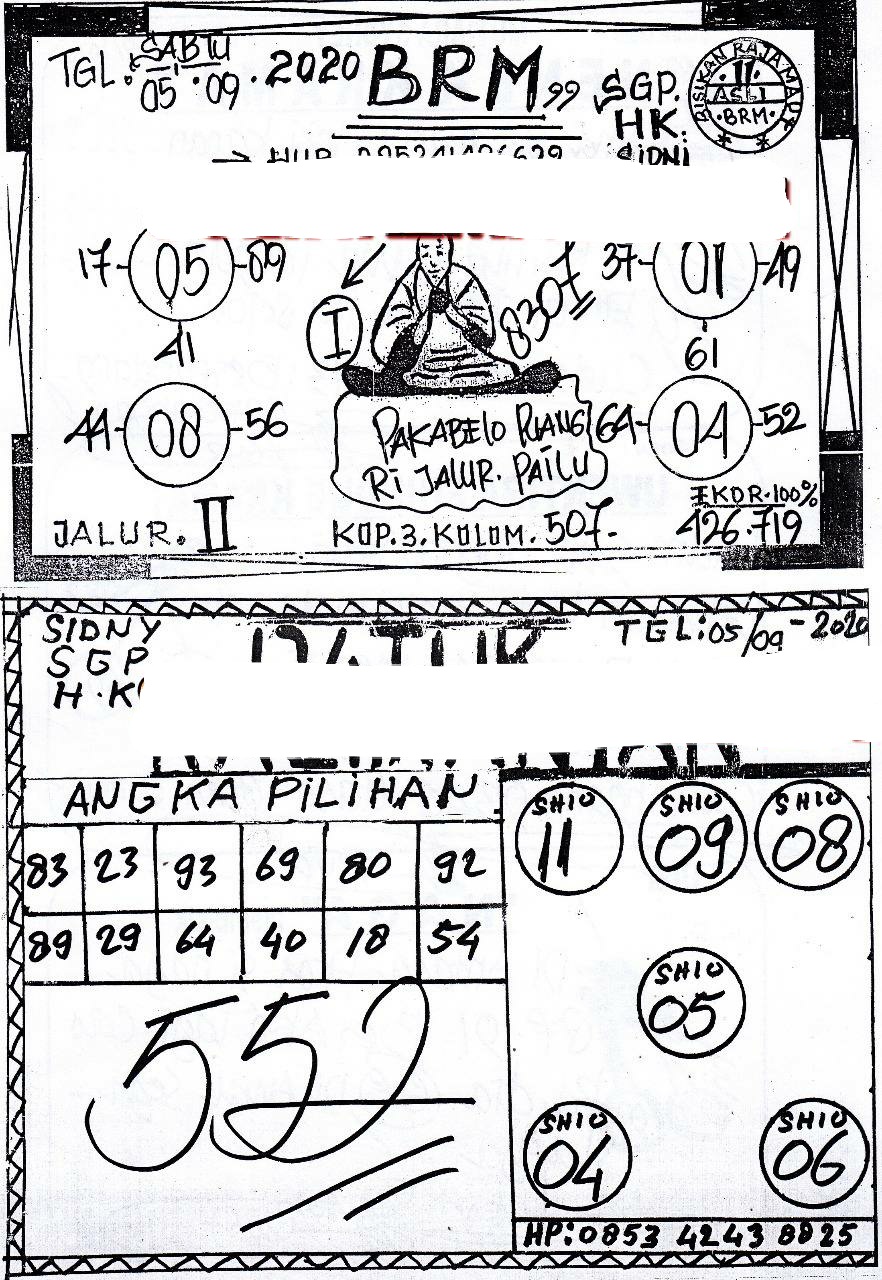 SABTU
TGL. 05.09.2020 BRM 99 SGP.
HK.
SIDNI
BISIKAN RAJA MADU
II
ASLI
BRM
17-05-89
41
I
8307
37-01-49
61
44-08-56
64-04-52
PAKABELO RUANG
RI JALUR. PAILU
EKOR.100%
JALUR. II KOP.3.KOLOM. 507- 426.719
SIDNY TGL:05/09-2020
SGP
H.K
ANGKA PILIHAN
83 23 93 69 80 92
89 29 64 40 18 54
552
SHIO 11
SHIO 09
SHIO 08
SHIO 05
SHIO 04
SHIO 06
HP:0853 4243 8825